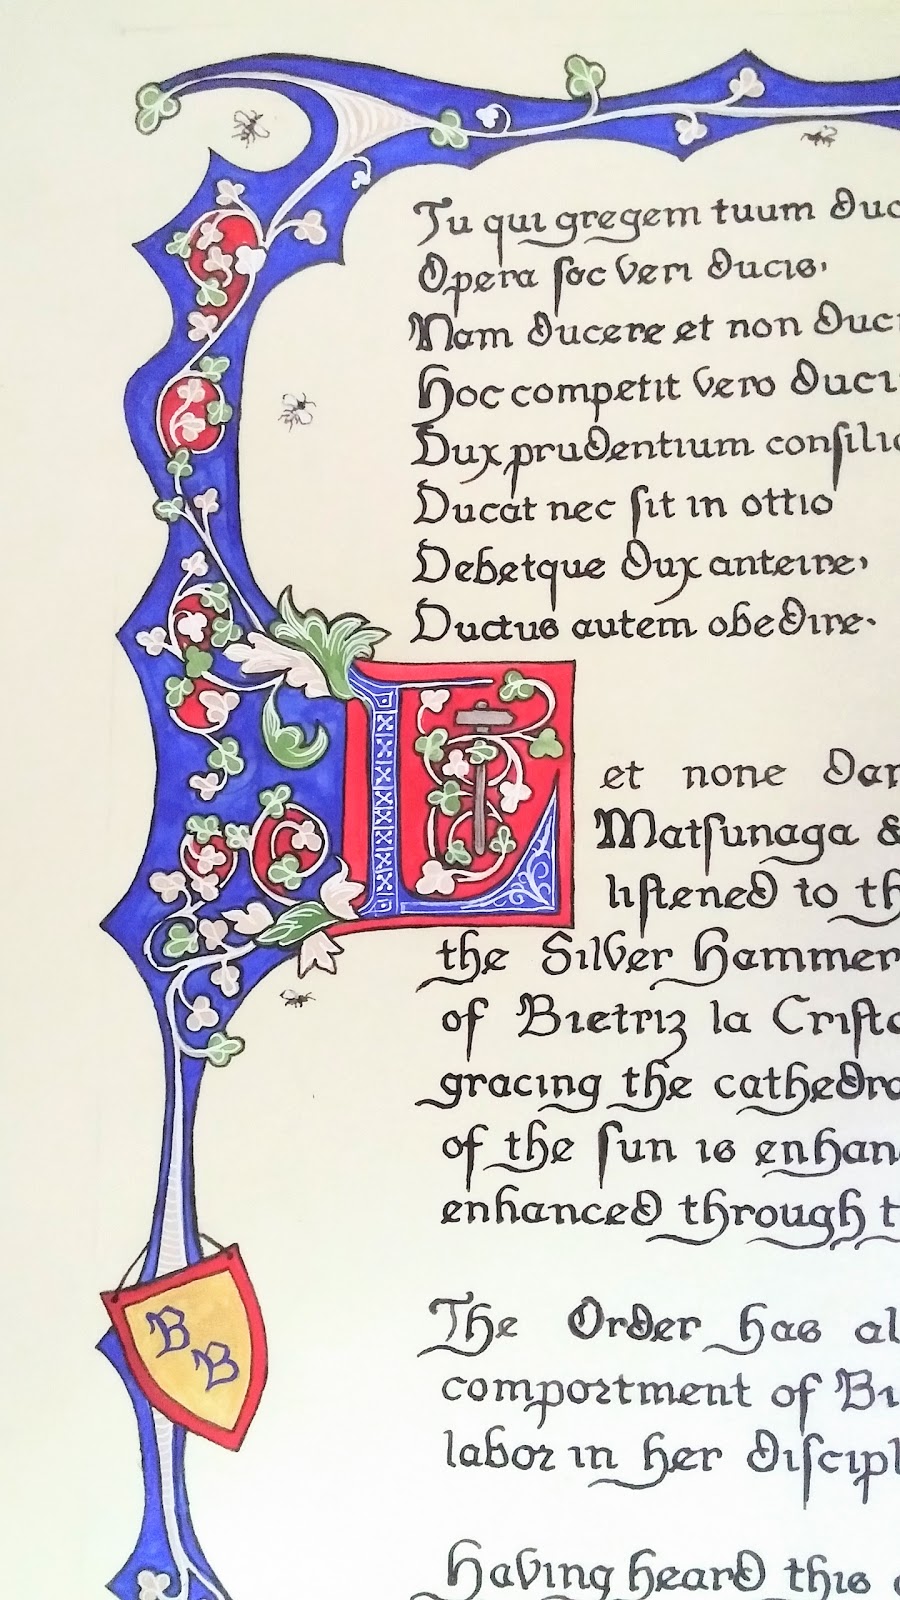 Tu qui gregem tuum duc
Opera foc veri ducis,
Nam ducere et non duci
Hoc competit vero duci
Dux prudentium consilio
Ducat nec sit in ottio
Debetque dux anteire,
Ductus autem obedire.
L
et none dar
Matsunaga &
listened to th
the Silver Hammer
of Bietriz la Cristo
gracing the cathedra
of the sun is enhan
enhanced through t
The Order has al
comportment of Bi
labor in her discipl
Having heard this
B
B